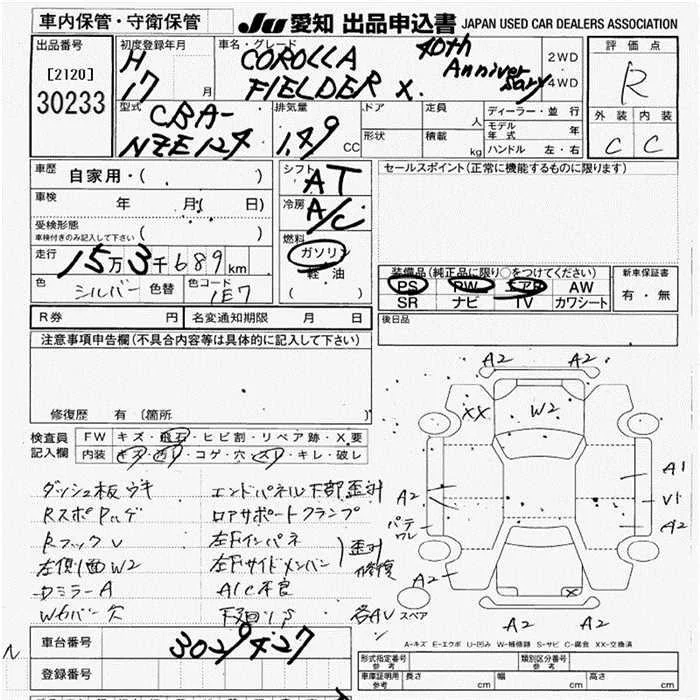 車内保管・守衛保管
JU 愛知 出品申込書 JAPAN USED CAR DEALERS ASSOCIATION
出品番号
[2120]
30233
初度登録年月
H
17 月
車名・グレード
COROLLA
FIELDER X.
40th
Anniversary
2WD
4WD
評価点
R
外装 内装
C C
型式
CBA-
NZE124
排気量
1.49 CC
ドア
形状
定員 人
積載 kg
ディーラー・並行
モデル年式 年
ハンドル 左・右
車歴
自家用・( )
車検 年 月( 日)
受検形態
車検付きのみ記入して下さい
走行
15万3千689km
色 シルバー 色替 色コード 1E7
シフト
AT
冷房
A/C
燃料
ガソリン
軽油
( )
セールスポイント(正常に機能するものに限ります)
装備品(純正品に限り○をつけてください)
PS PW エアB AW
SR ナビ TV カワシート
新車保証書
有・無
R券 円 名変通知期限 月 日
後日品
注意事項申告欄(不具合内容等は具体的に記入して下さい)
修復歴 有 〔箇所 〕
検査員
記入欄
FW キズ・飛石・ヒビ割・リペア跡・X要
内装 キズ・汚れ・コゲ・穴・スレ・キレ・破レ
ダッシュ板ウキ
Rフック V
左側面W2
DミラーA
Wカバー欠
エンドパネル下部歪ミ
ロアサポートクランプ
左Fインパネ
左Fサイドメンバー
歪ミ
修復
A/C不良
下廻りS
各AV
A2 A2
XX W2
A1
A2 V1
パテワレ A2
A2
X
スペア
A2 A2
A-キズ E-エクボ U-凹み W-補修跡 S-サビ C-腐食 XX-交換済
車台番号
3029427
登録番号
型式指定番号
参考
類別区分番号
参考
車庫証明用
参考
長さ cm 幅 cm 高さ cm